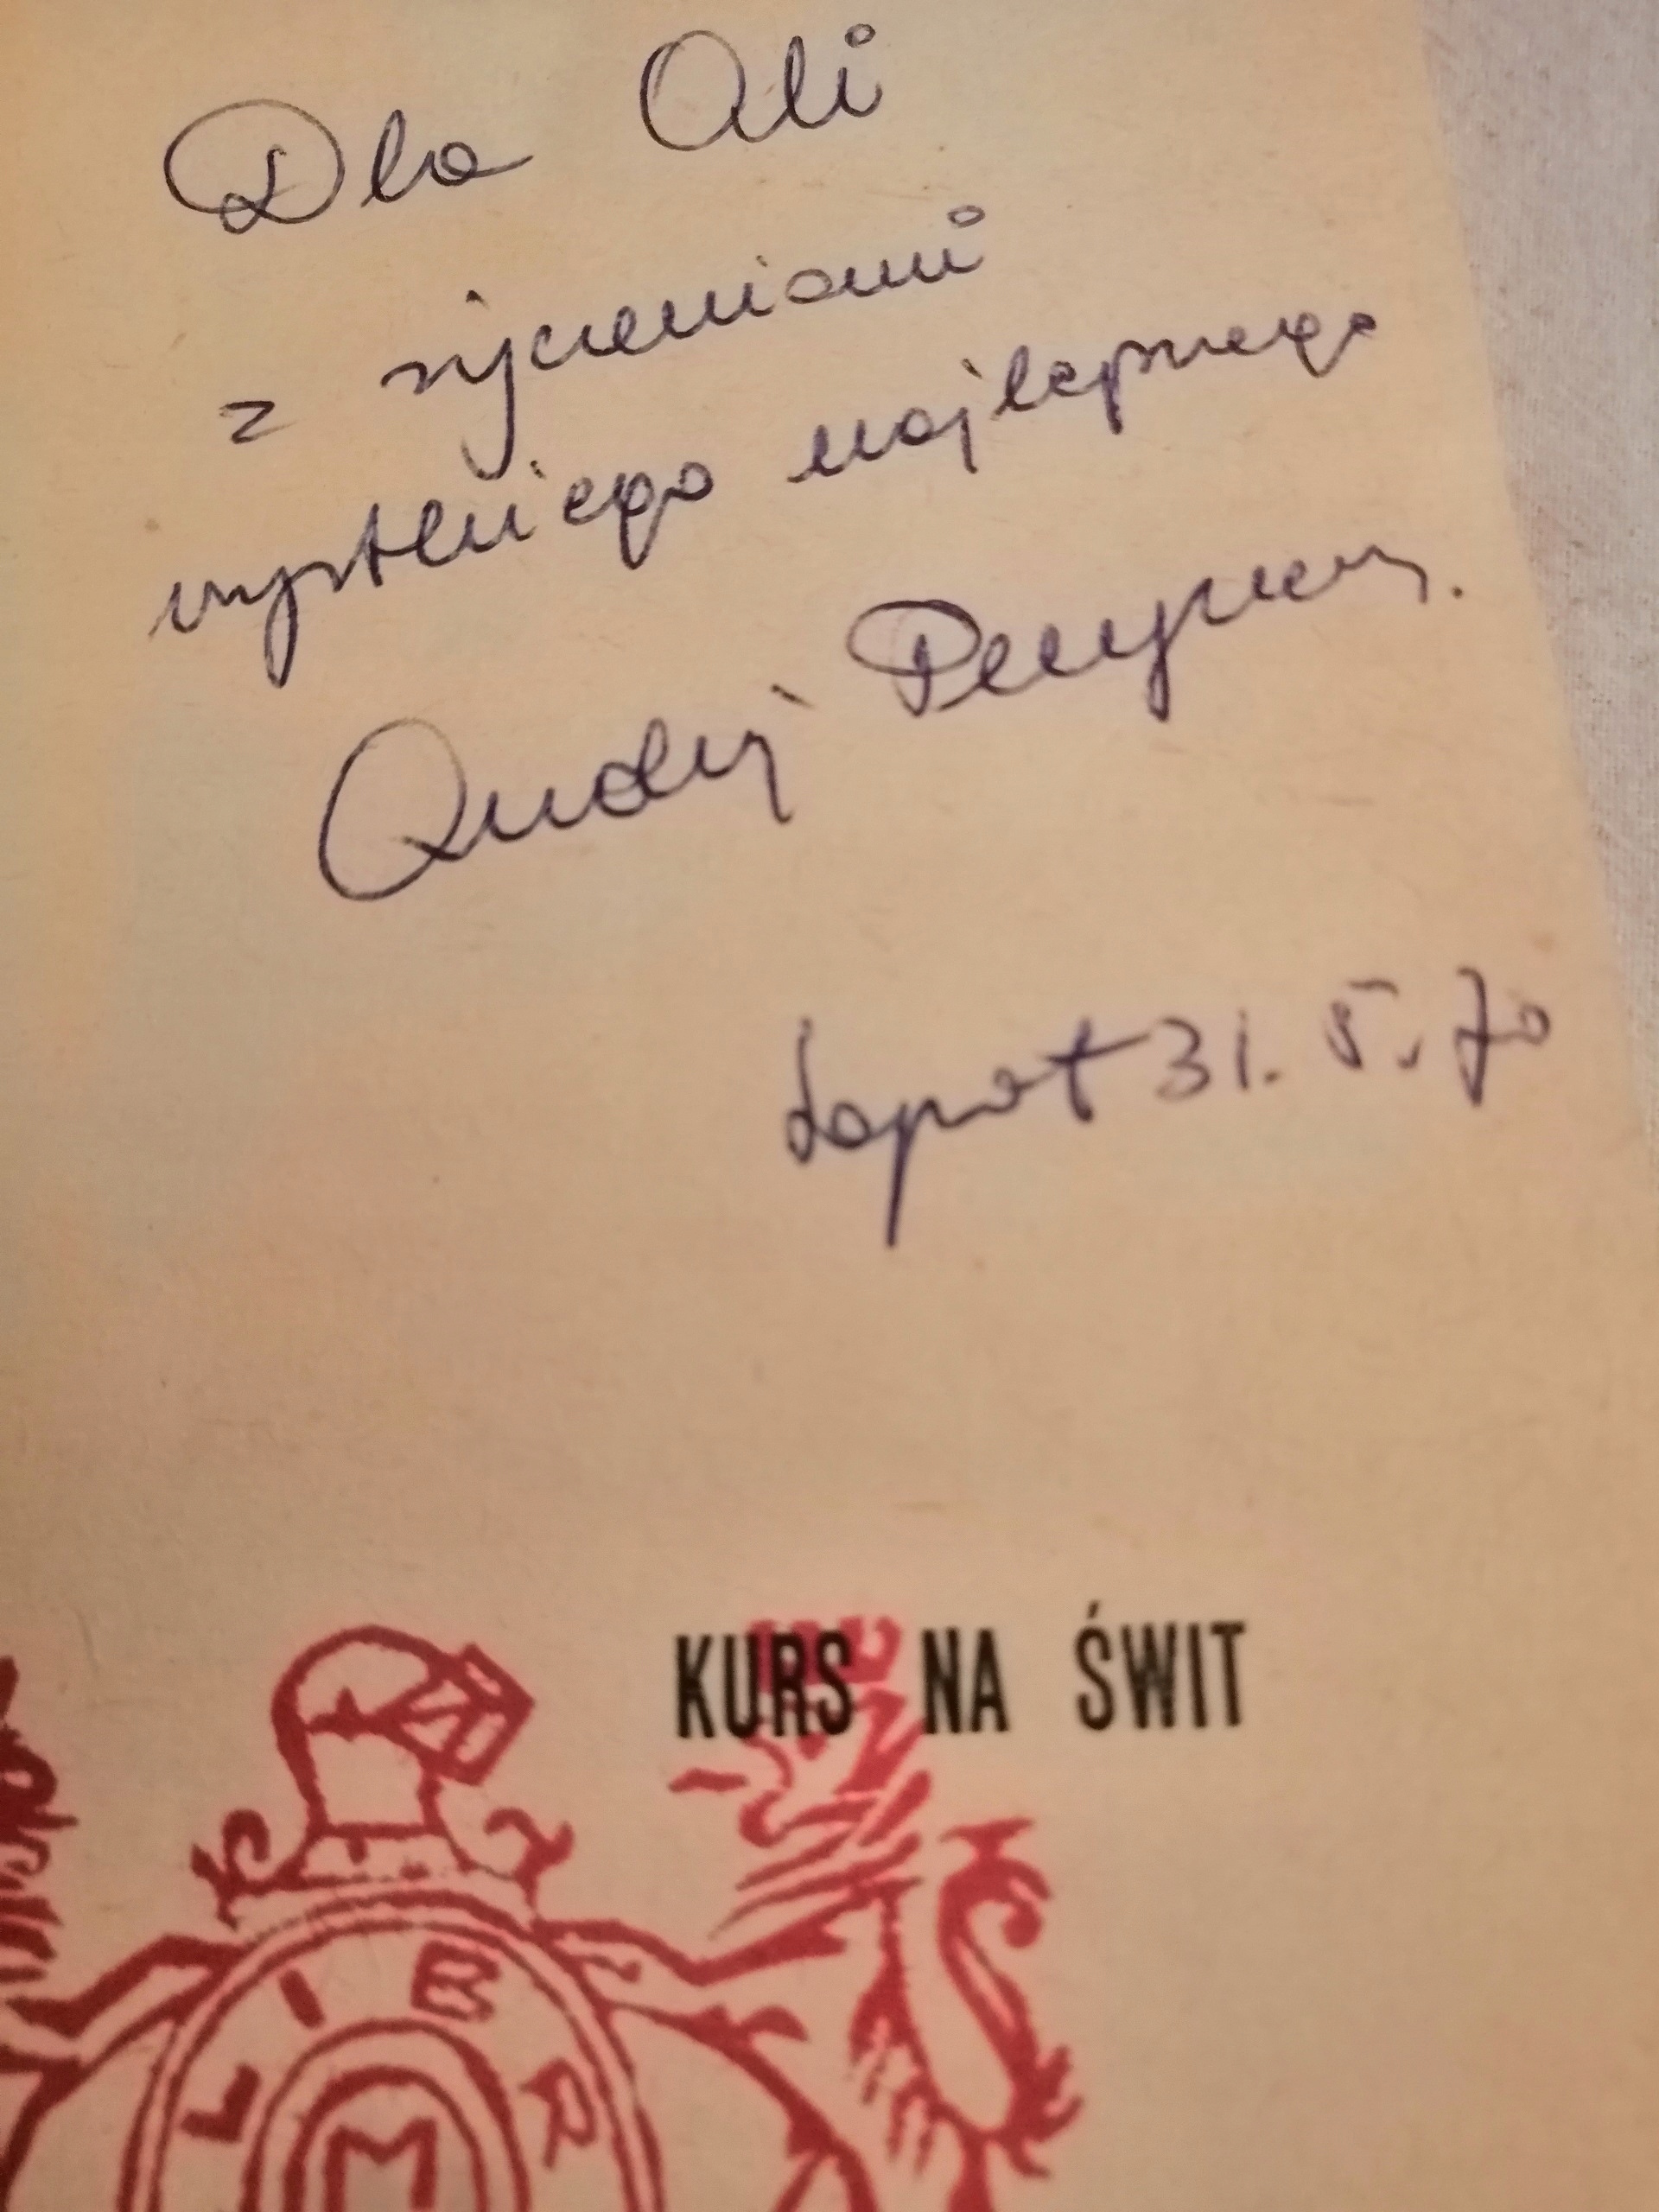 Dla Ali
z życzeniami
wszystkiego najlepszego
Andrzej Perepeczko.
Sopot 31.5.70
KURS NA ŚWIT
LIBR
M